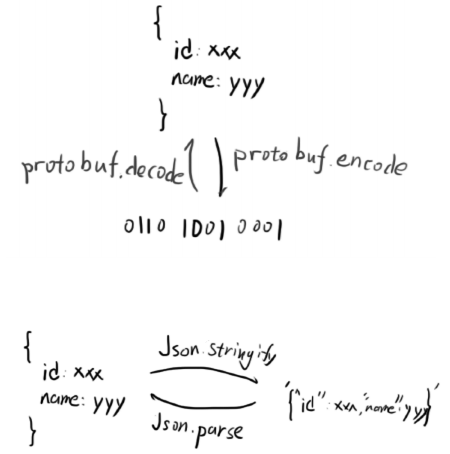 {
id: xxx
name: yyy
}
protobuf.decode
protobuf.encode
0110 1001 0001
{
id: xxx
name: yyy
}
Json.stringify
Json.parse
'{"id": xxx,"name":yyy}'